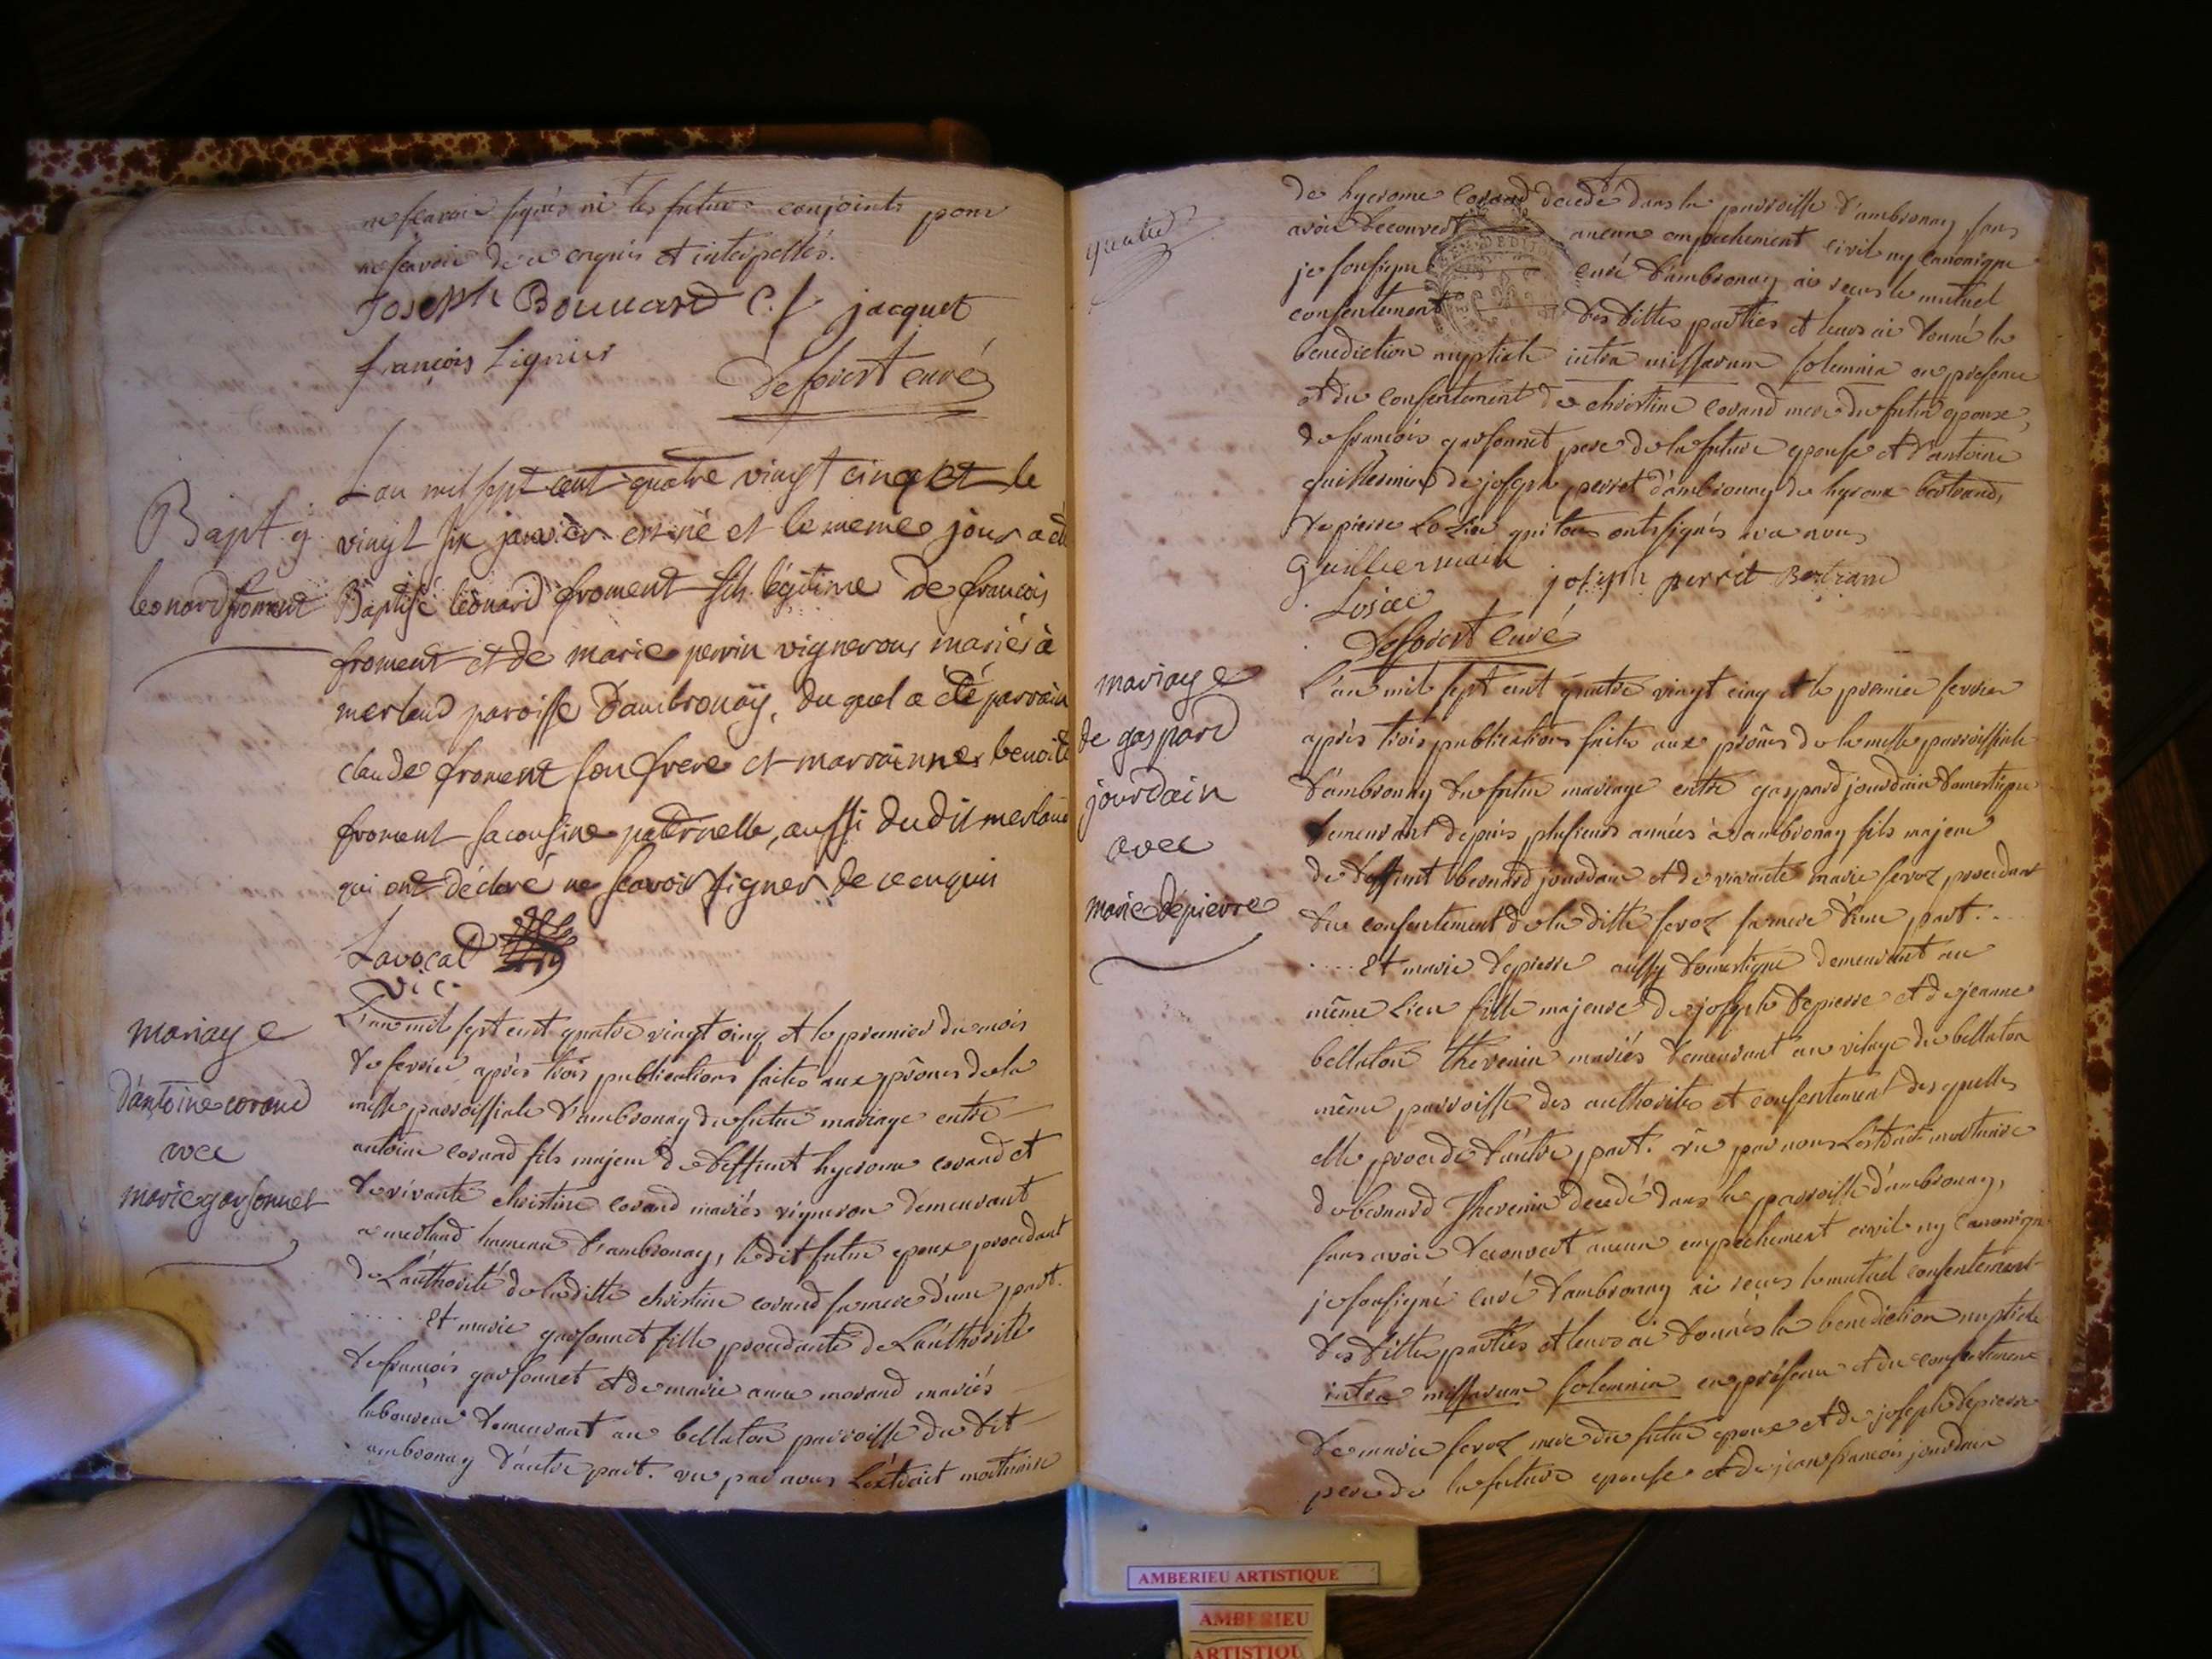 ne scavoir signés ni les futurs conjoints pour
ne scavoir de ce enquis et interpellés.
Joseph Bouuard C. f jacquet
françois Lignier
Deforest curé
Bapt. g.
leonard froment
L'an mil sept cent quatre vingt cinq et le
vingt six janvier est né et le meme jour a eté
Baptisé leonard froment fils légitime de francois
froment et de marie perrin vignerons mariés à
merland paroisse d'ambronaÿ, du quel a été parrain
claude froment son frere et marrainne benoite
froment sa cousine paternelle, aussi dudit merland
qui ont déclaré ne scavoir signer de ce enquis
Lavocat
vic.
mariage
d'antoine corand
avec
marie garsonnet
L'an mil sept cent quatre vingt cinq et le premier du mois
de fevrier après trois publications faites aux prônes de la
messe parroissiale d'ambronay du futur mariage entre
antoine corand fils majeur de deffunt hyerome corand et
de vivante christine corand mariés vigneron demeurant
a merland hameau d'ambronay, ledit futur epoux procedant
de L'authorité de laditte christine corand sa mere d'une part.
. . . . . Et marie garsonnet fille procedante de L'authorité
de françois garsonnet et de marie anne morand mariés
laboureur demeurant au bellaton parroisse du dit
ambronay d'autre part. vu par nous L'extrait mortuaire
de hyerome Corand decedé dans la parroisse d'ambronay sans
avoir decouvert aucun empechement civil ny canonique
je sousigné curé d'ambronay ai recus le mutuel
consentement des dittes parties et leurs ai donné la
benediction nuptiale intra missarum solemnia en presence
et du consentement de christine corand mere du futur epoux,
de françois garsonnet pere de la future epouse et d'antoine
guillermin de joseph perret d'ambronay de hyerome bertrand,
de pierre Lozier qui tous onts signés avec nous
Guilliermain joseph perret Bertrand
Losier
Deforest Curé
mariage
de gaspard
jourdain
avec
marie depierre
L'an mil sept cent quatre vingt cinq et le premier fevrier
après trois publications faites aux prônes de la messe parroissiale
d'ambronay du futur mariage entre gaspard jourdain domestique
demeurant depuis plusieurs années à ambronay fils majeur
de deffunt bernard jourdain et de vivante marie feroz procedant
du consentement de laditte feroz sa mere d'une part. . .
. . . . Et marie depierre aussy domestique demeurant au
même Lieu fille majeure de joseph depierre et de jeanne
bellaton thevenin mariés demeurant au vilage du bellaton
même parroisse des authorités et consentement des quelles
elle procede d'autre part. vû par nous L'extrait mortuaire
de bernard Thevenin decedé dans la parroisse d'ambronay,
sans avoir decouvert aucun empêchement civil ny Canonique
je sousigné curé d'ambronay ai recus le mutuel consentement
des dittes parties et leurs ai donnés la benediction nuptiale
intra missarum solemnia en présence et du consentement
de marie feroz mere du futur epoux et de joseph depierre
pere de la future epouse et de jean françois jourdain
AMBERIEU ARTISTIQUE
AMBERIEU
ARTISTIQU